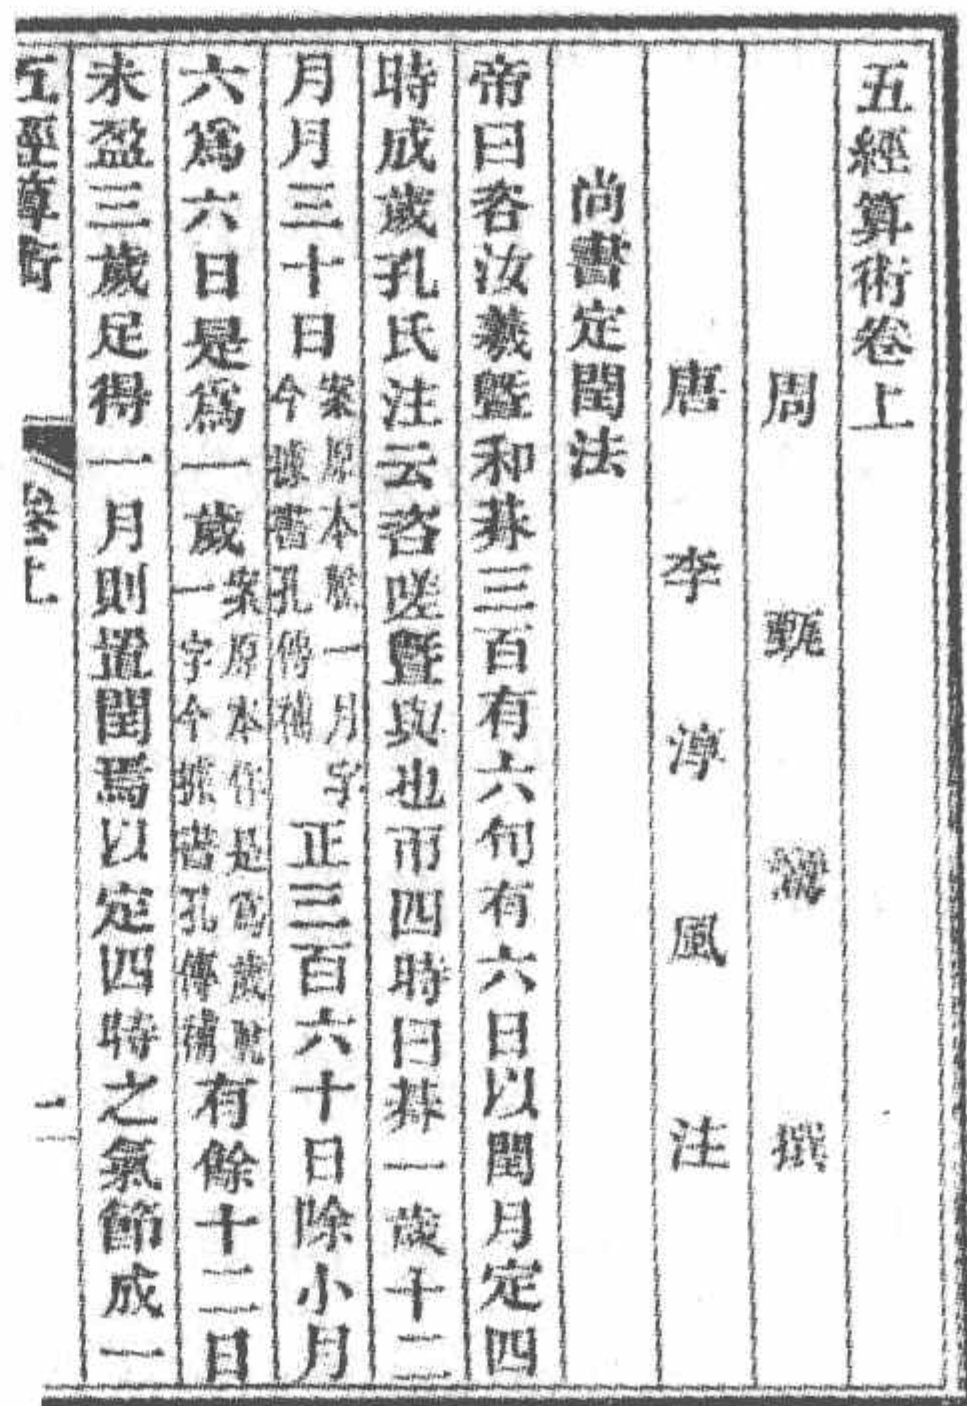 五經算術卷上
周甄鸞撰
唐李淳風注
尚書定閏法
帝曰咨汝羲暨和朞三百有六旬有六日以閏月定四
時成歲孔氏注云咨嗟暨與也帀四時曰朞一歲十二
月月三十日案原本脫一月字今據書孔傳補正三百六十日除小月
六爲六日是爲一歲案原本作是爲歲脫一字今據書孔傳補有餘十二日
未盈三歲足得一月則置閏焉以定四時之氣節成一
五經算術 卷上